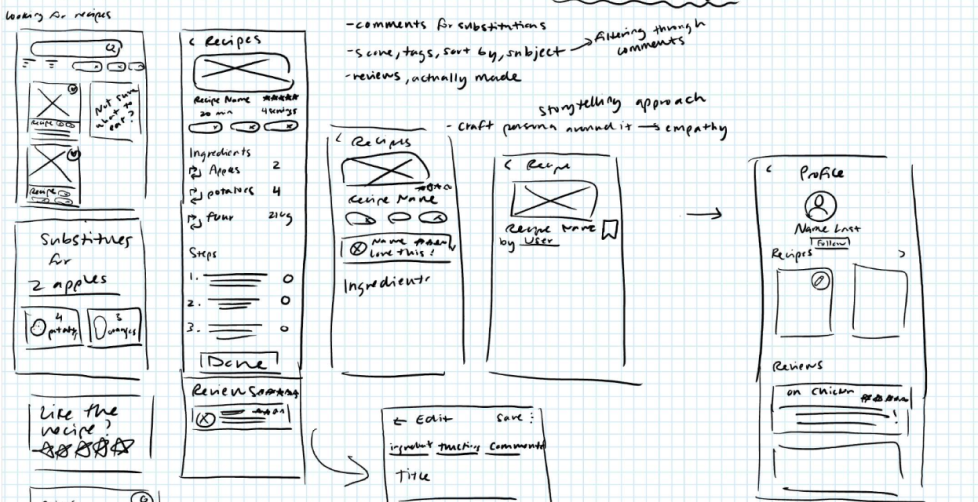 looking for recipes
Not sure
what to
eat?
Recipe
Recipe
Substitues
for
2 apples
4
potatoes
3
oranges
Like the
recipe?
< Recipes
Recipe Name
20 min 4 servings
Ingredients
Apples 2
potatoes 4
flour 211g
Steps
1.
2.
3.
Done
Reviews
- comments for substitutions
- score, tags, sort by, subject → filtering through
comments
- reviews, actually made
storytelling approach
- craft persona around it → empathy
< Recipes
Recipe Name
Name
love this!
Ingredients
< Recipe
Recipe Name
by User
← Edit Save :
Comments
Title
< Profile
Name Last
Follow
Recipes >
Reviews
on Chicken